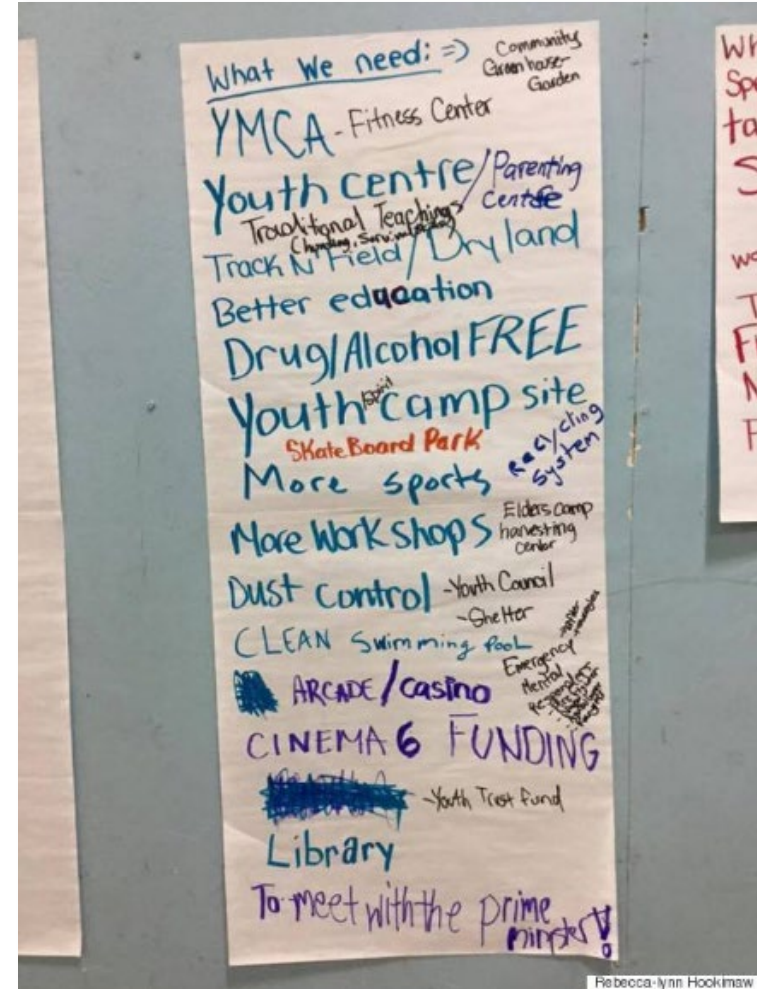 What We need: =>
Community
Greenhouse-
Garden
YMCA - Fitness Center
Youth centre/Parenting
Centre
Traditional Teachings
Track N' Field/Dry land
Better education
Drug/Alcohol FREE
Youth spirit camp site
SkateBoard Park
Recycling
System
More sports
More Workshops
Elders camp
harvesting
center
Dust control - Youth Council
- Shelter
CLEAN Swimming Pool
Emergency
Mental
ARCADE/casino
CINEMA 6 FUNDING
- Youth Trust fund
Library
To meet with the prime
minister!
Wh
Sp
ta
S
we
T
F
N
F
Rebecca-lynn Hookimaw